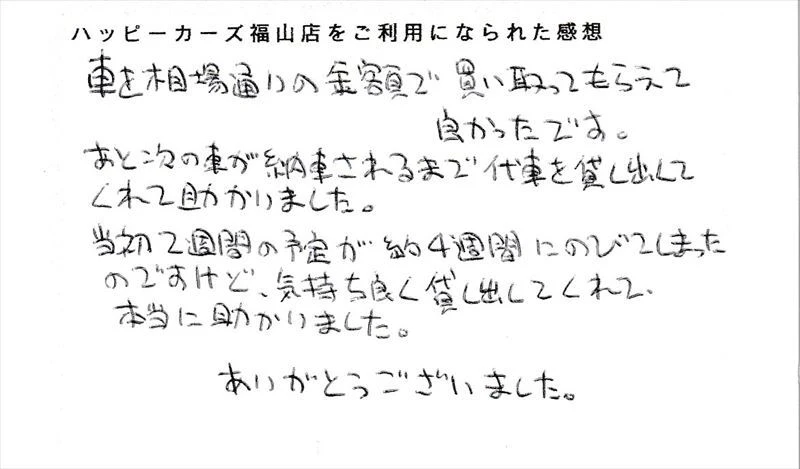 ハッピーカーズ福山店をご利用になられた感想
車を相場通りの金額で買い取ってもらえて
良かったです。
あと次の車が納車されるまで代車を貸し出して
くれて助かりました。
当初2週間の予定が約4週間にのびてしまった
のですけど、気持ち良く貸し出してくれて、
本当に助かりました。
ありがとうございました。